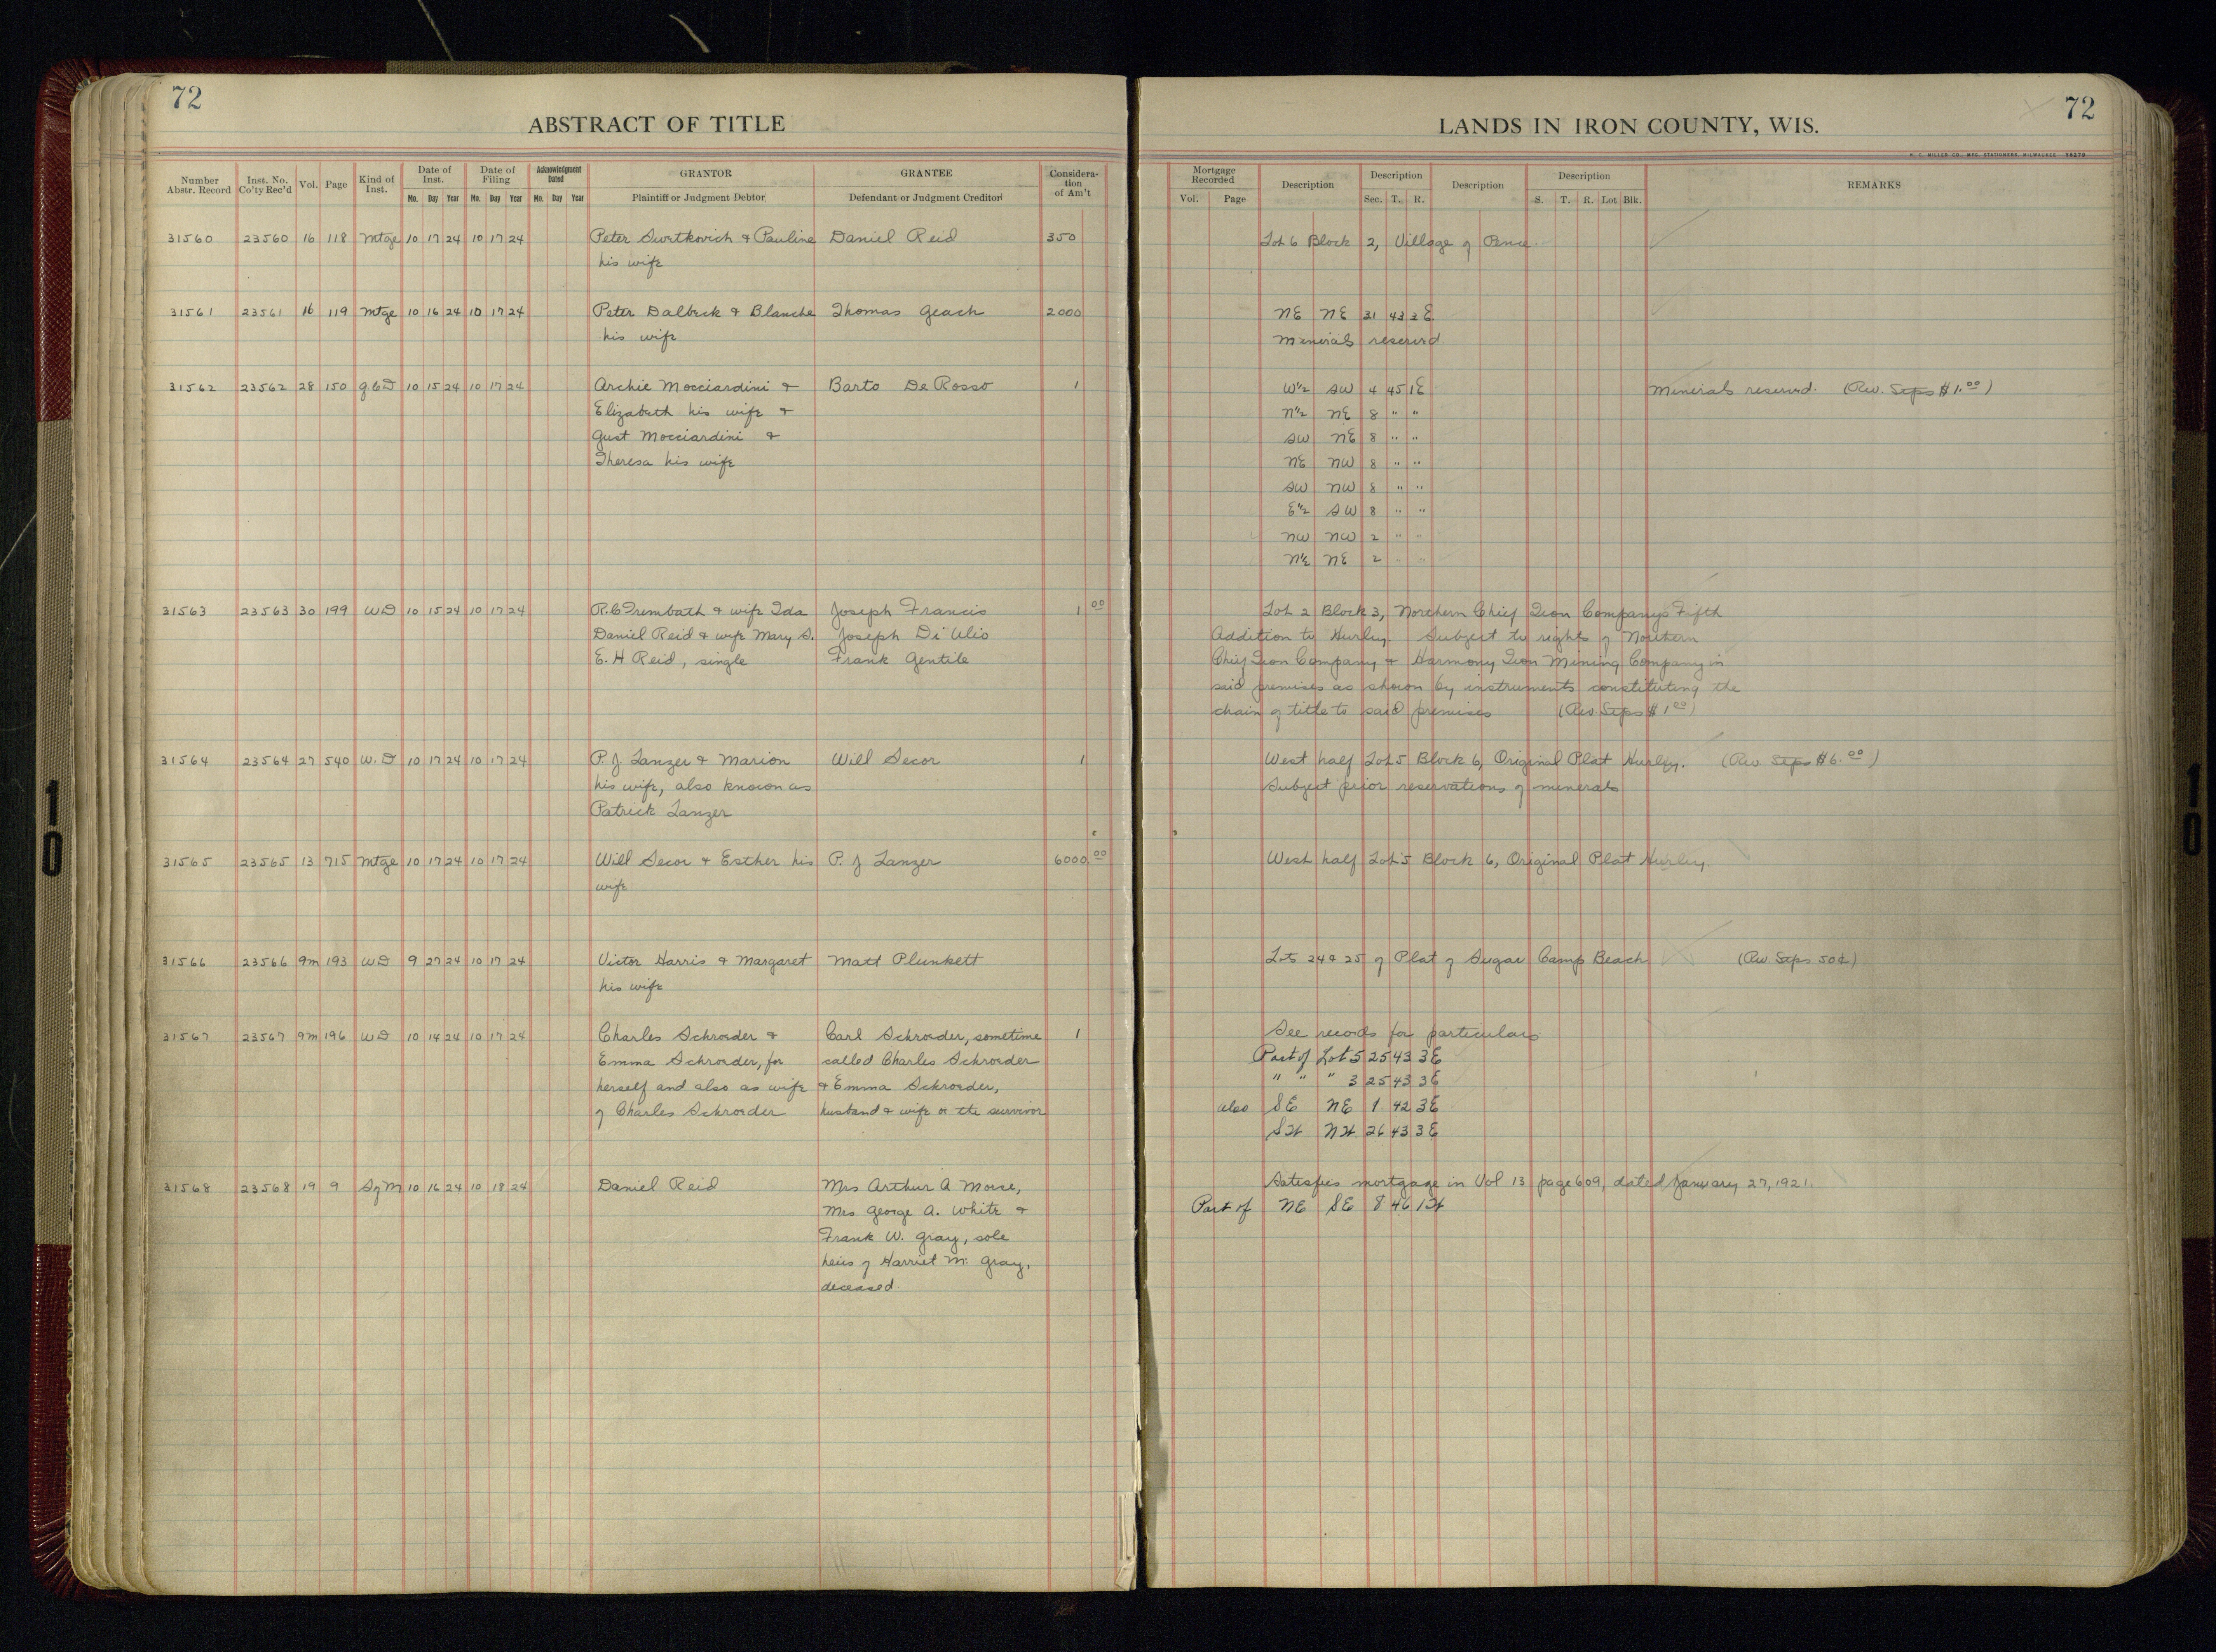 72
ABSTRACT OF TITLE
Number Abstr. Record Inst. No. Co'ty Rec'd Vol. Page Kind of Inst. Date of Inst. Date of Filing Acknowledgment Dated GRANTOR GRANTEE Considera-tion of Am't
Mo. Day Year Mo. Day Year Mo. Day Year Plaintiff or Judgment Debtor Defendant or Judgment Creditor
31560 23560 16 118 Mtge 10 17 24 10 17 24 Peter Surtkovich & Pauline Daniel Reid 350
his wife
31561 23561 16 119 Mtge 10 16 24 10 17 24 Peter Dalbeck & Blanche Thomas Geach 2000
his wife
31562 23562 28 150 QCD 10 15 24 10 17 24 Archie Mocciardini & Barto De Rosso 1
Elizabeth his wife &
Gust Mocciardini &
Theresa his wife
31563 23563 30 199 WD 10 15 24 10 17 24 R.C Trembath & wife Ida Joseph Francis 1 00
Daniel Reid & wife Mary S. Joseph Di Ulio
E. H Reid, single Frank Gentile
31564 23564 27 540 W.D 10 17 24 10 17 24 P. J. Lanzer & Marion Will Secor 1
his wife, also known as
Patrick Lanzer
31565 23565 13 715 Mtge 10 17 24 10 17 24 Will Secor & Esther his P. J Lanzer 6000 00
wife
31566 23566 9m 193 WD 9 27 24 10 17 24 Victor Harris & Margaret Matt Plunkett
his wife
31567 23567 9m 196 WD 10 14 24 10 17 24 Charles Schroeder & Carl Schroeder, sometime 1
Emma Schroeder, for called Charles Schroeder
herself and also as wife & Emma Schroeder,
of Charles Schroeder husband & wife or the survivor
31568 23568 19 9 S of M 10 16 24 10 18 24 Daniel Reid Mrs Arthur A Morse,
Mrs George A. White &
Frank W. Gray, sole
heirs of Harriet M. Gray,
deceased.
72
LANDS IN IRON COUNTY, WIS.
Mortgage Recorded Description Description Description Description REMARKS
Vol. Page Sec. T. R. S. T. R. Lot Blk.
Lot 6 Block 2, Village of Pence
NE NE 31 43 3E
Minerals reserved
W½ SW 4 45 1E Minerals reserved. (Rev. Stps $1.00)
N½ NE 8 " "
SW NE 8 " "
NE NW 8 " "
SW NW 8 " "
E½ SW 8 " "
NW NW 2 " "
N½ NE 2 " "
Lot 2 Block 3, Northern Chief Iron Companys Fifth
Addition to Hurley. Subject to rights of Northern
Chief Iron Company & Harmony Iron Mining Company in
said premises as shown by instruments constituting the
chain of title to said premises (Rev. Stps $1 00)
West half Lot 5 Block 6, Original Plat Hurley. (Rev Stps $6.00)
Subject prior reservations of minerals
West half Lot 5 Block 6, Original Plat Hurley.
Lots 24 & 25 of Plat of Sugar Camp Beach (Rev. Stps 50¢)
See records for particulars
Part of Lot 5 25 43 3E
" " " 3 25 43 3E
also SE NE 1 42 3E
SW NW 26 43 3E
Satisfies mortgage in Vol 13 page 609, dated January 27, 1921.
Part of NE SE 8 46 1W